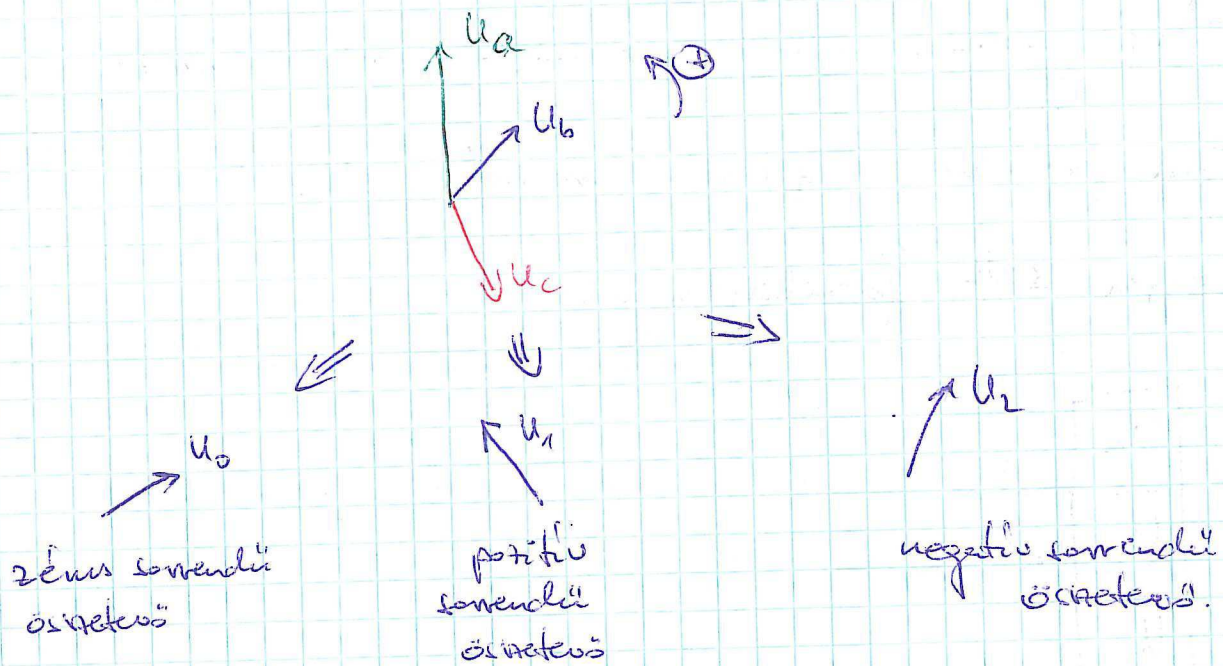 Ua
+
Ub
Uc
U0
U1
U2
zérus sorrendű
összetevő
pozitív
sorrendű
összetevő
negatív sorrendű
összetevő.